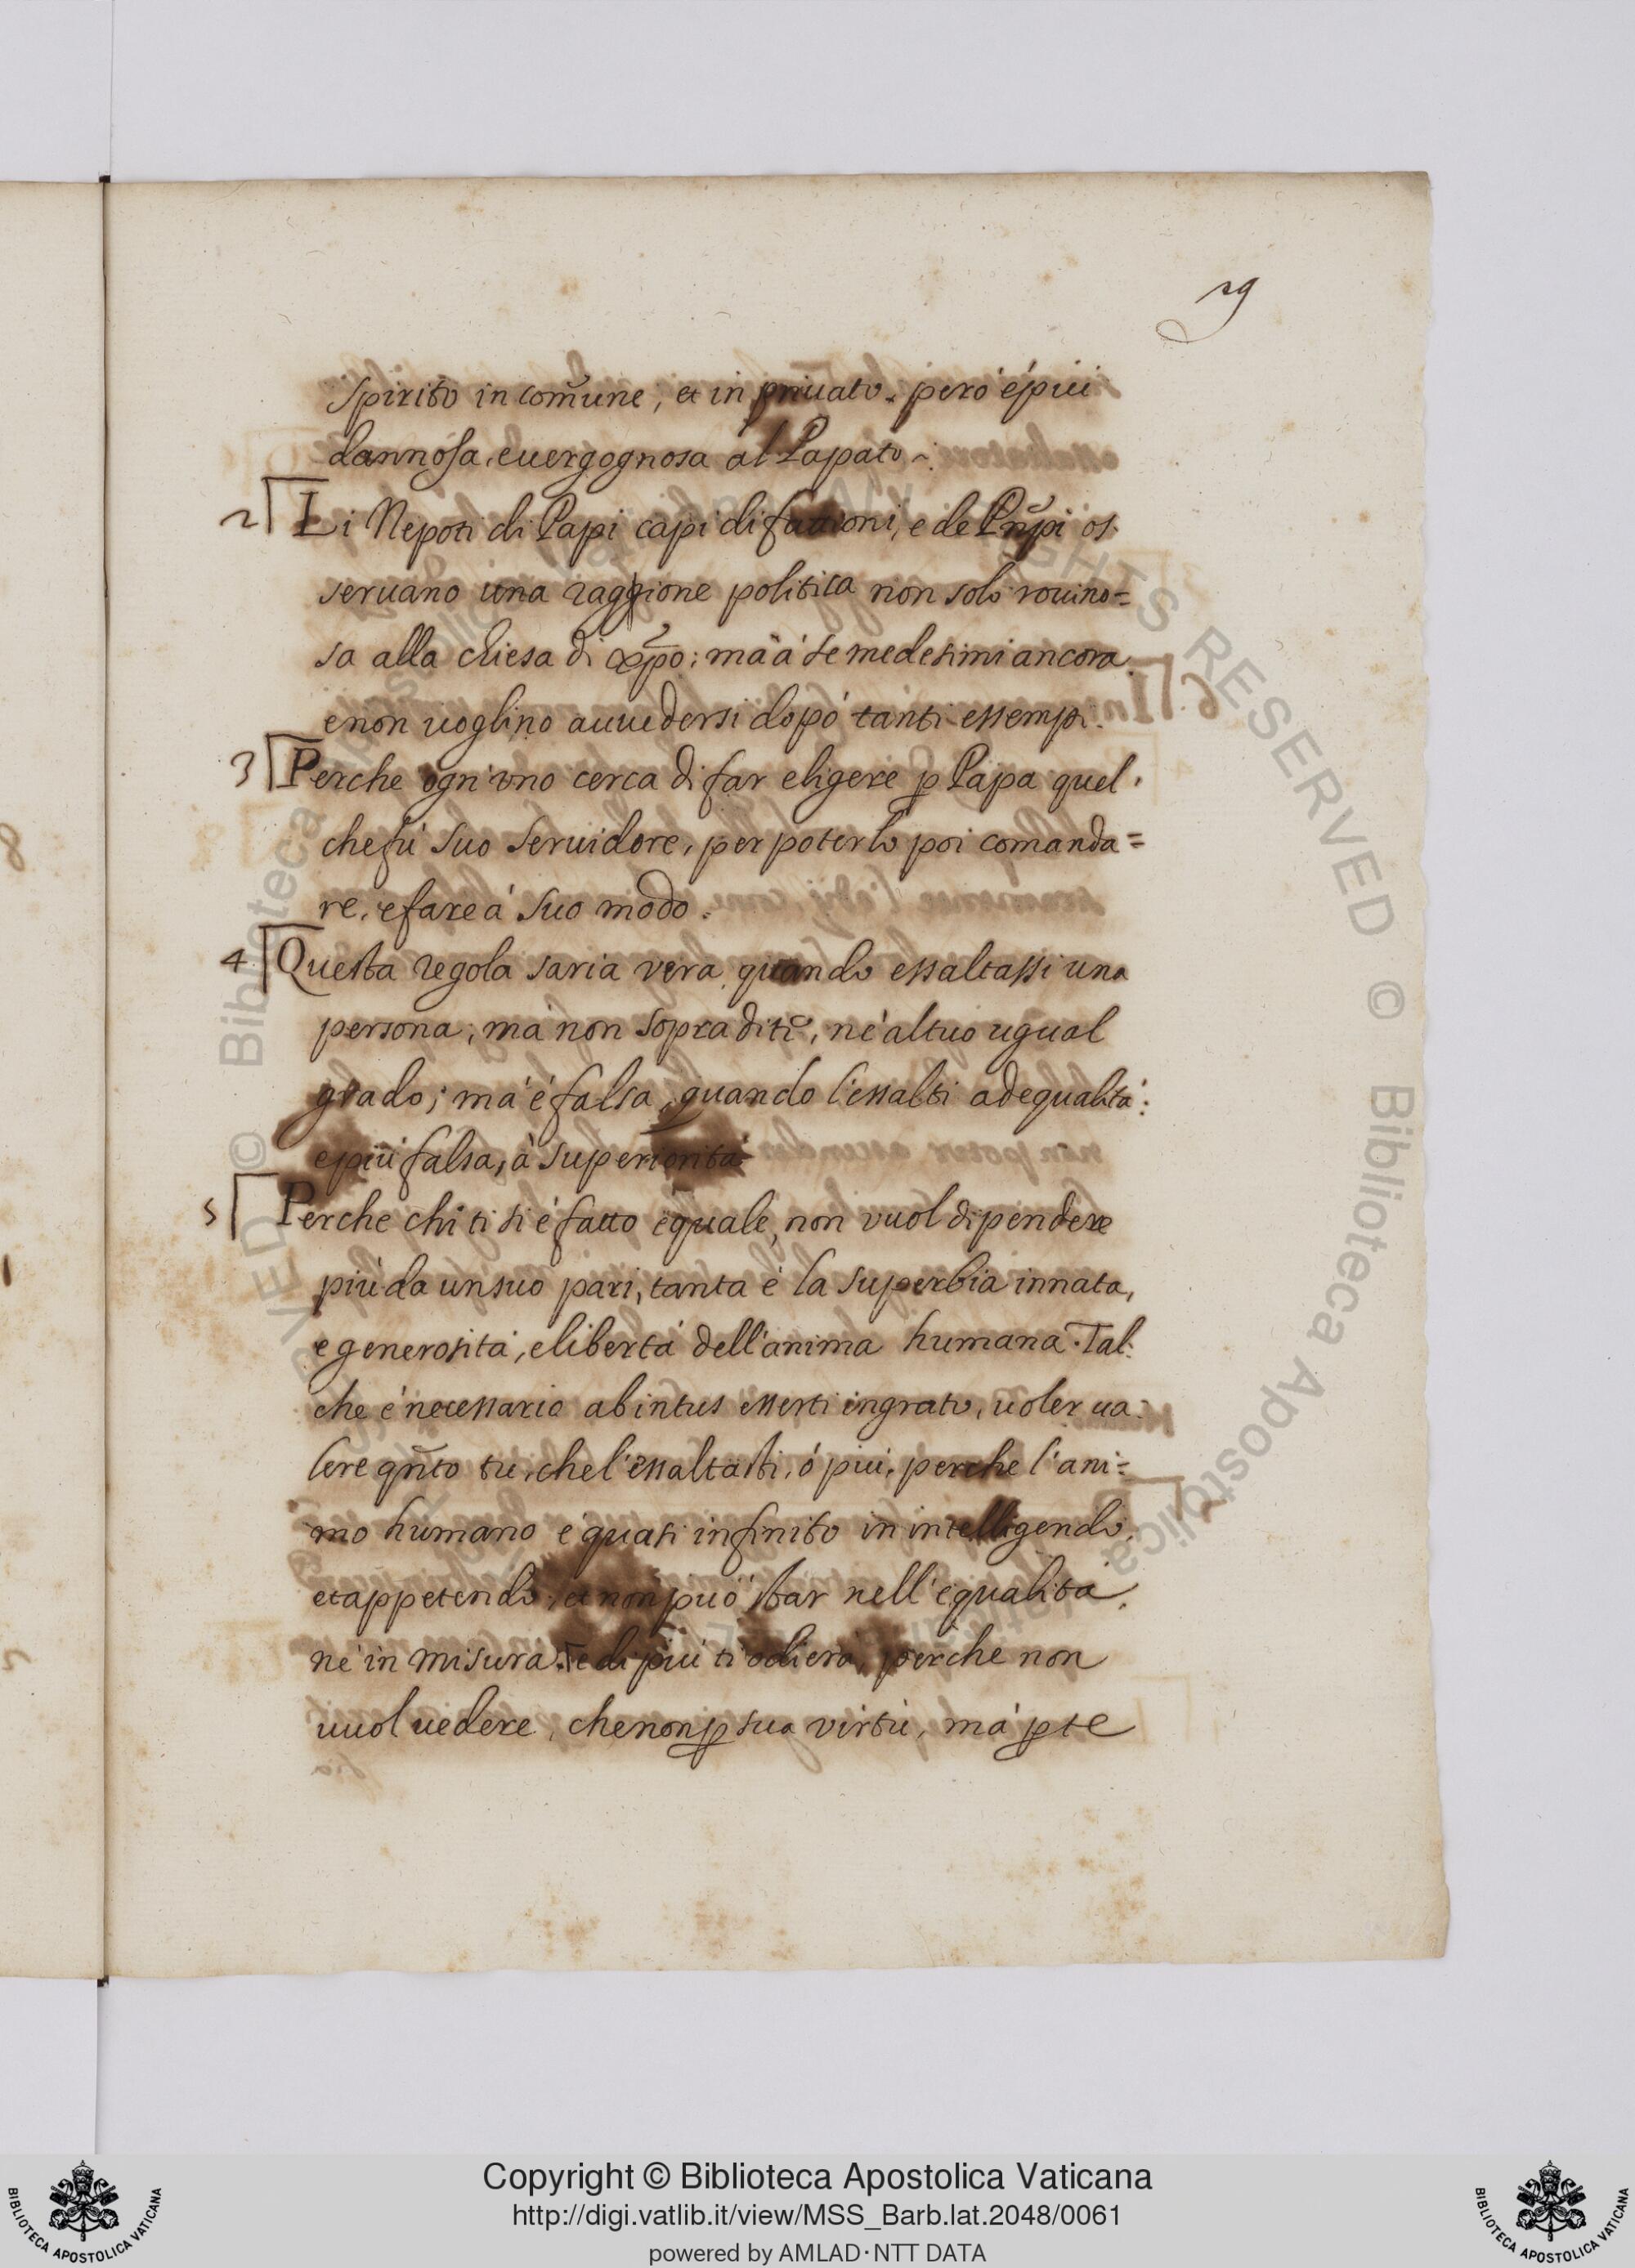 29
spirito in com̃une, et in priuato. però é piú
dannosa, e uergognosa al Papato ~.
2 Li Nepoti di Papi capi di fattioni, e de Prñpi os-
seruano una raggione politica non solo rouino=
sa alla chiesa di xp̃o; mà à se medesimi ancora
e non uoglino auuedersi dopó tanti essempi.
3 Perche ogn'vno cerca di far eligere ꝑ Papa quel,
che fú suo seruidore, per poterlo poi comanda=
re, e fare á suo modo.
4 Questa regola saria vera, quando essaltassi una
persona; má non sopra di të, né al tuo ugual
grado; má é falsa, quando l'essalti ad equalitá:
e piú falsa, à superiorità
5 Perche chi ti si é fatto equale, non vuol dipendere
piú da un suo pari, tanta é la superbia innata,
e generosita, e libertá dell'anima humana. Tal:
che é necessario ab intus esserti ingrato, uoler ua-
lere qñto tu, che l'essaltasti, ó piú, perche l'ani=
mo humano é quasi infinito in intelligendo,
et appetendo, et non puó star nell'equalitá,
né in misura. e di piú ti odierá, perche non
uuol uedere, che non ꝑ sua virtú, má ꝑ te
Biblioteca Apostolica
RIGHTS RESERVED © Biblioteca Apostolica
BIBLIOTECA APOSTOLICA VATICANA
Copyright © Biblioteca Apostolica Vaticana
http://digi.vatlib.it/view/MSS_Barb.lat.2048/0061
powered by AMLAD·NTT DATA
BIBLIOTECA APOSTOLICA VATICANA